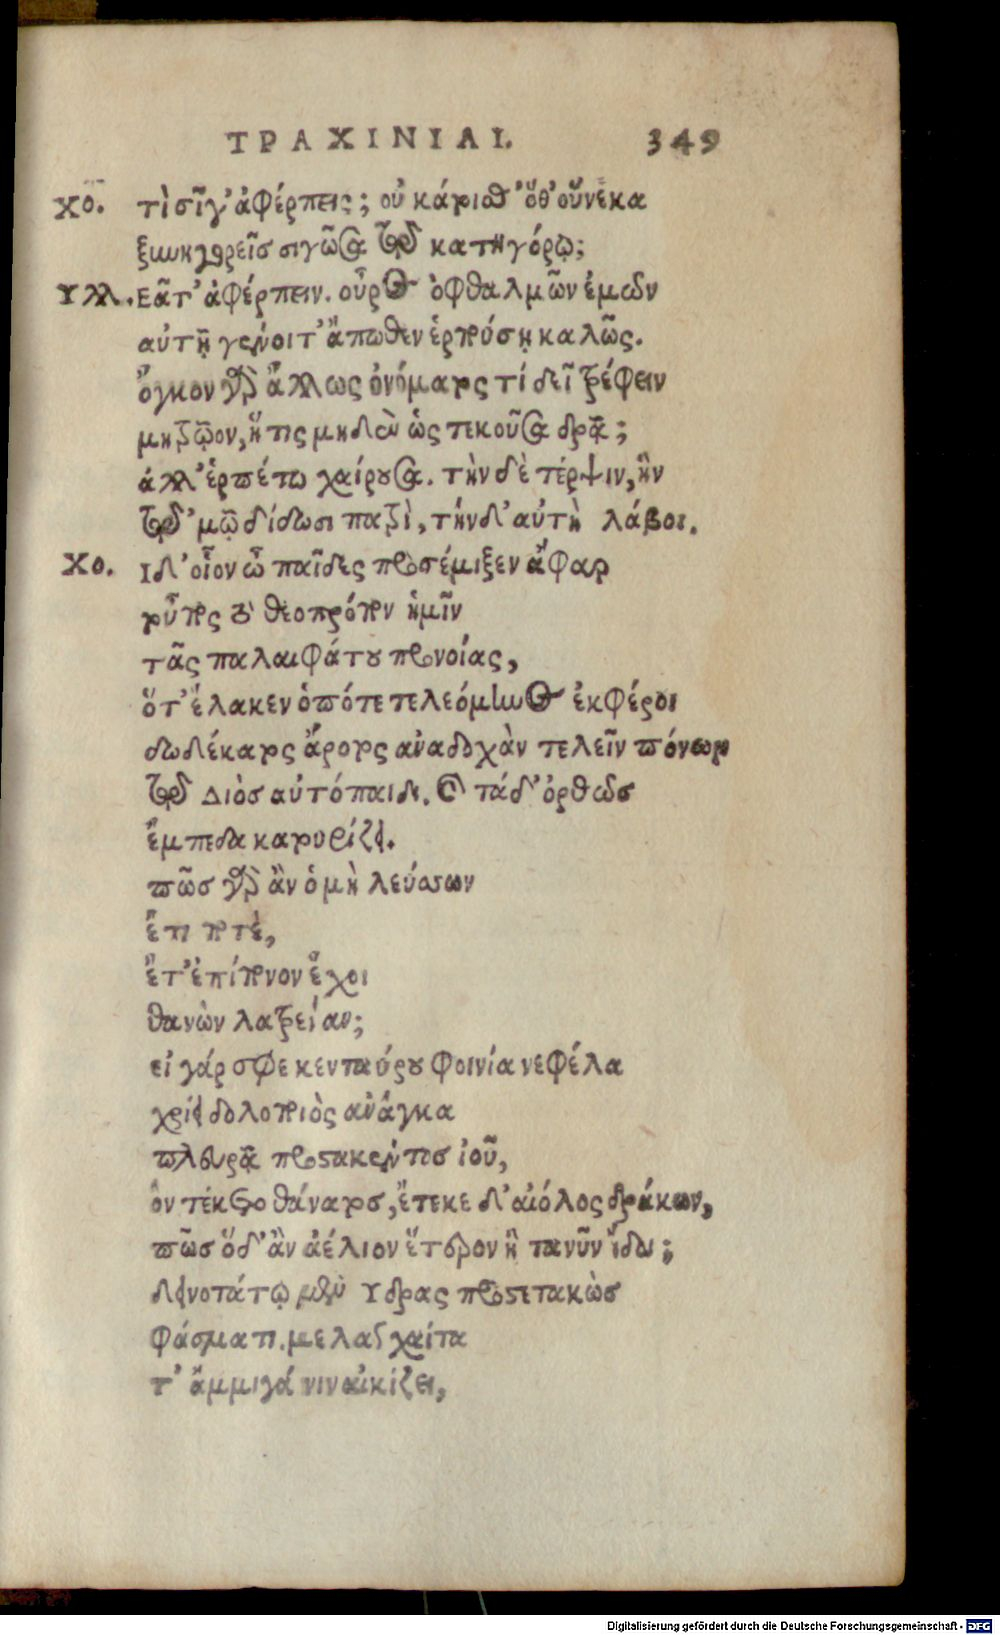 ΤΡΑΧΙΝΙΑΙ. 349
ΧΟ. τὶ σῖγ' ἀφέρπεις; οὐ κάτιοσθ' ὅθ' οὕνεκα
ξυνηγορεῖς σιγῶσα τῷ κατηγόρῳ;
ΥΛΛ. Εᾶτ' ἀφέρπειν. οὖρος ὀφθαλμῶν ἐμῶν
αὐτῇ γένοιτ' ἄπωθεν ἑρπούσῃ καλῶς.
ὄγκον γὰρ ἄλλως ὀνόματος τί δεῖ τρέφειν
μητρῷον, ἥτις μηδὲν ὡς τεκοῦσα δρᾷ;
ἀλλ' ἑρπέτω χαίρουσα. τὴν δὲ τέρψιν, ἣν
τῷ 'μῷ δίδωσι πατρὶ, τήνδ' αὐτὴ λάβοι.
ΧΟ. ιδ' οἷον ὦ παῖδες προσέμιξεν ἄφαρ
τοὖπος τὸ θεοπρόπον ἡμῖν
τᾶς παλαιφάτου προνοίας,
ὅτ' ἔλακεν ὁπότε τελεόμηνος ἐκφέροι
δωδέκατος ἄροτος ἀναδοχὰν τελεῖν πόνων
τῷ Διὸς αὐτόπαιδι. καὶ τάδ' ὀρθῶς
ἔμπεδα κατουρίζει.
πῶς γὰρ ἂν ὁ μὴ λεύσσων
ἔτι ποτὲ,
ἔτ' ἐπίπονον ἔχοι
θανὼν λατρείαν;
εἰ γάρ σφε κενταύρου φοινία νεφέλα
χρίει δολοποιὸς ἀνάγκα
πλευρᾷ προστακέντος ἰοῦ,
ὃν τέκετο θάνατος, ἔτεκε δ' αἰόλος δράκων,
πῶς ὅδ' ἂν ἀέλιον ἕτερον ἢ τανῦν ἴδοι;
δεινοτάτῳ μὲν Υδρας προστετακὼς
φάσματι. μελαγχαίτα
τ' ἄμμιγά νιν αἰκίζει,
Digitalisierung gefördert durch die Deutsche Forschungsgemeinschaft - DFG